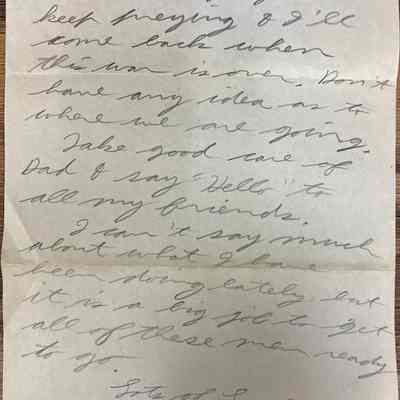 keep preying & I'll
come back when
this war is over. Don't
have any idea as to
where we are going.
Take good care of
Dad & say "Hello" to
all my friends.
I can't say much
about what I have
been doing lately but
it is a big job to get
all of these men ready
to go.
Lots of